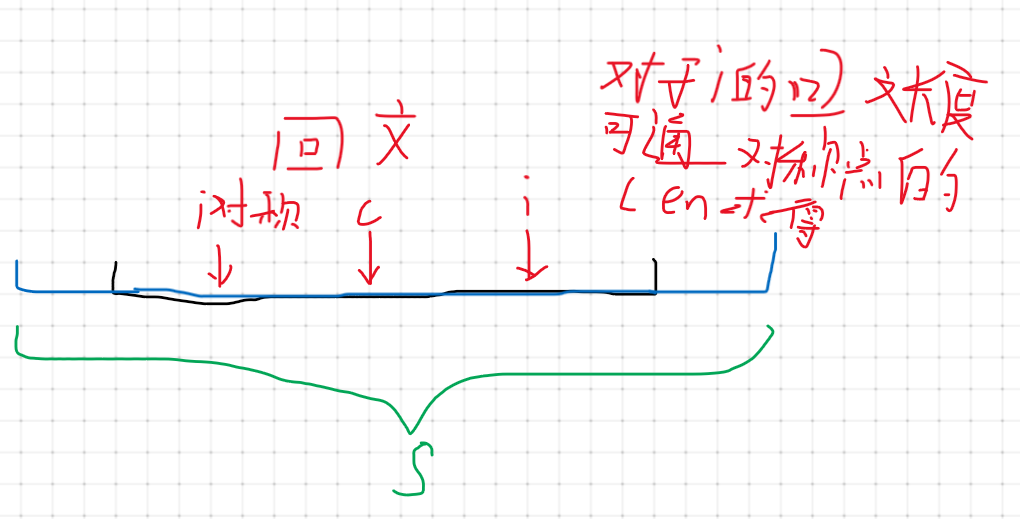 对于i的回文长度
可通 对称点的
len求得
回文
i对称 c i
S